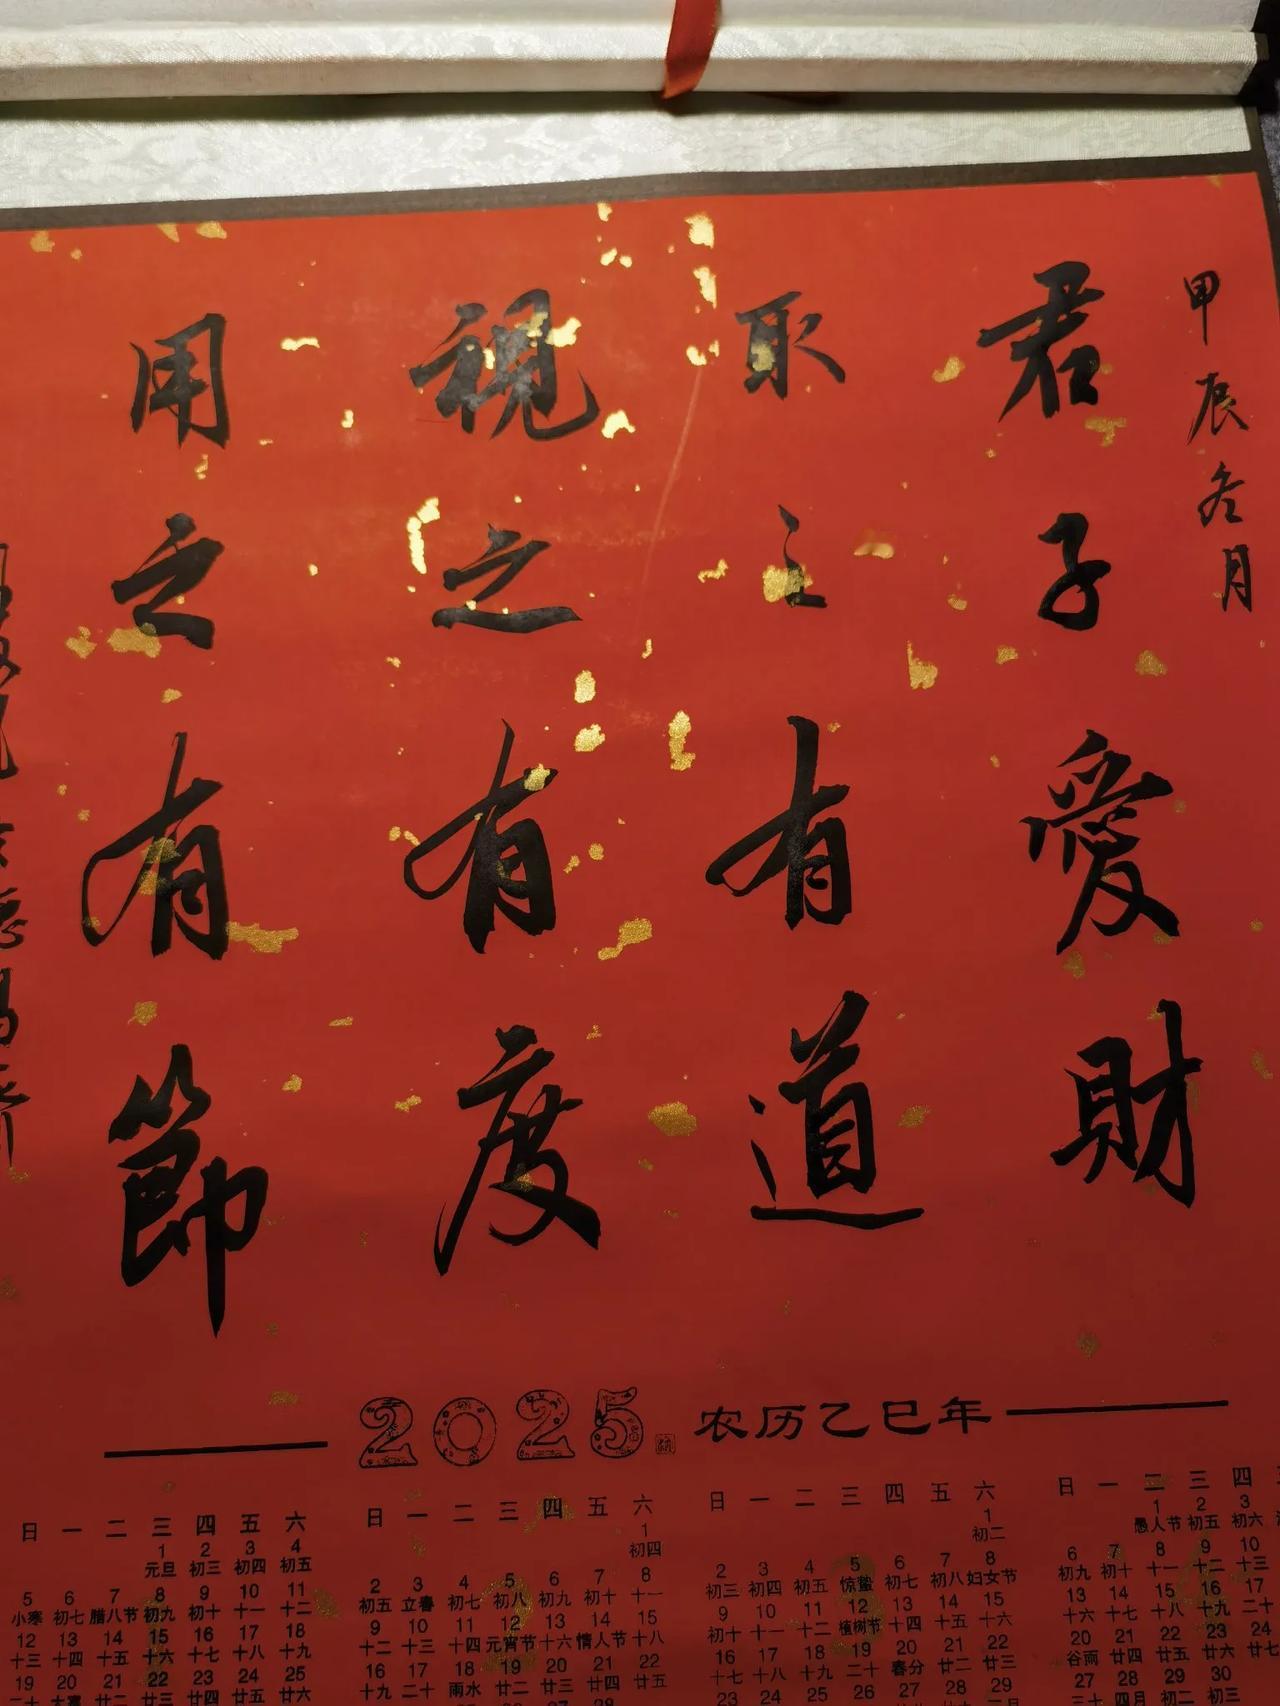 甲辰冬月
君子愛財
取之有道
視之有度
用之有節
2025 农历乙巳年
日 一 二 三 四 五 六
1 2 3 4
元旦 初三 初四 初五
5 6 7 8 9 10 11
小寒 初七 腊八节 初九 初十 十一 十二
12 13 14 15 16 17 18
十三 十四 十五 十六 十七 十八 十九
19 20 21 22 23 24 25
二十 大寒 廿二 廿三 廿四 廿五 廿六
日 一 二 三 四 五 六
1
初四
2 3 4 5 6 7 8
初五 立春 初七 初八 初九 初十 十一
9 10 11 12 13 14 15
十二 十三 十四 元宵节 十六 情人节 十八
16 17 18 19 20 21 22
十九 二十 雨水 廿二 廿三 廿四 廿五
27 28
日 一 二 三 四 五 六
1
初二
2 3 4 5 6 7 8
初三 初四 初五 惊蛰 初七 初八 妇女节
9 10 11 12 13 14 15
初十 十一 十二 植树节 十四 十五 十六
16 17 18 19 20 21 22
十七 十八 十九 二十 春分 廿二 廿三
23 24 25 26 27 28 29
日 一 二 三 四
1 2 3
愚人节 初五 初六
6 7 8 9 10
初九 初十 十一 十二 十三
13 14 15 16 17
十六 十七 十八 十九 二十
20 21 22 23 24
谷雨 廿四 廿五 廿六 廿七
27 28 29 30
三十 四月 初二 初三